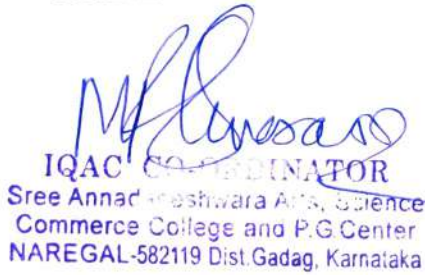 IQAC CO-ORDINATOR
Sree Annadaneshwara Arts, Science
Commerce College and P.G.Center
NAREGAL-582119 Dist.Gadag, Karnataka